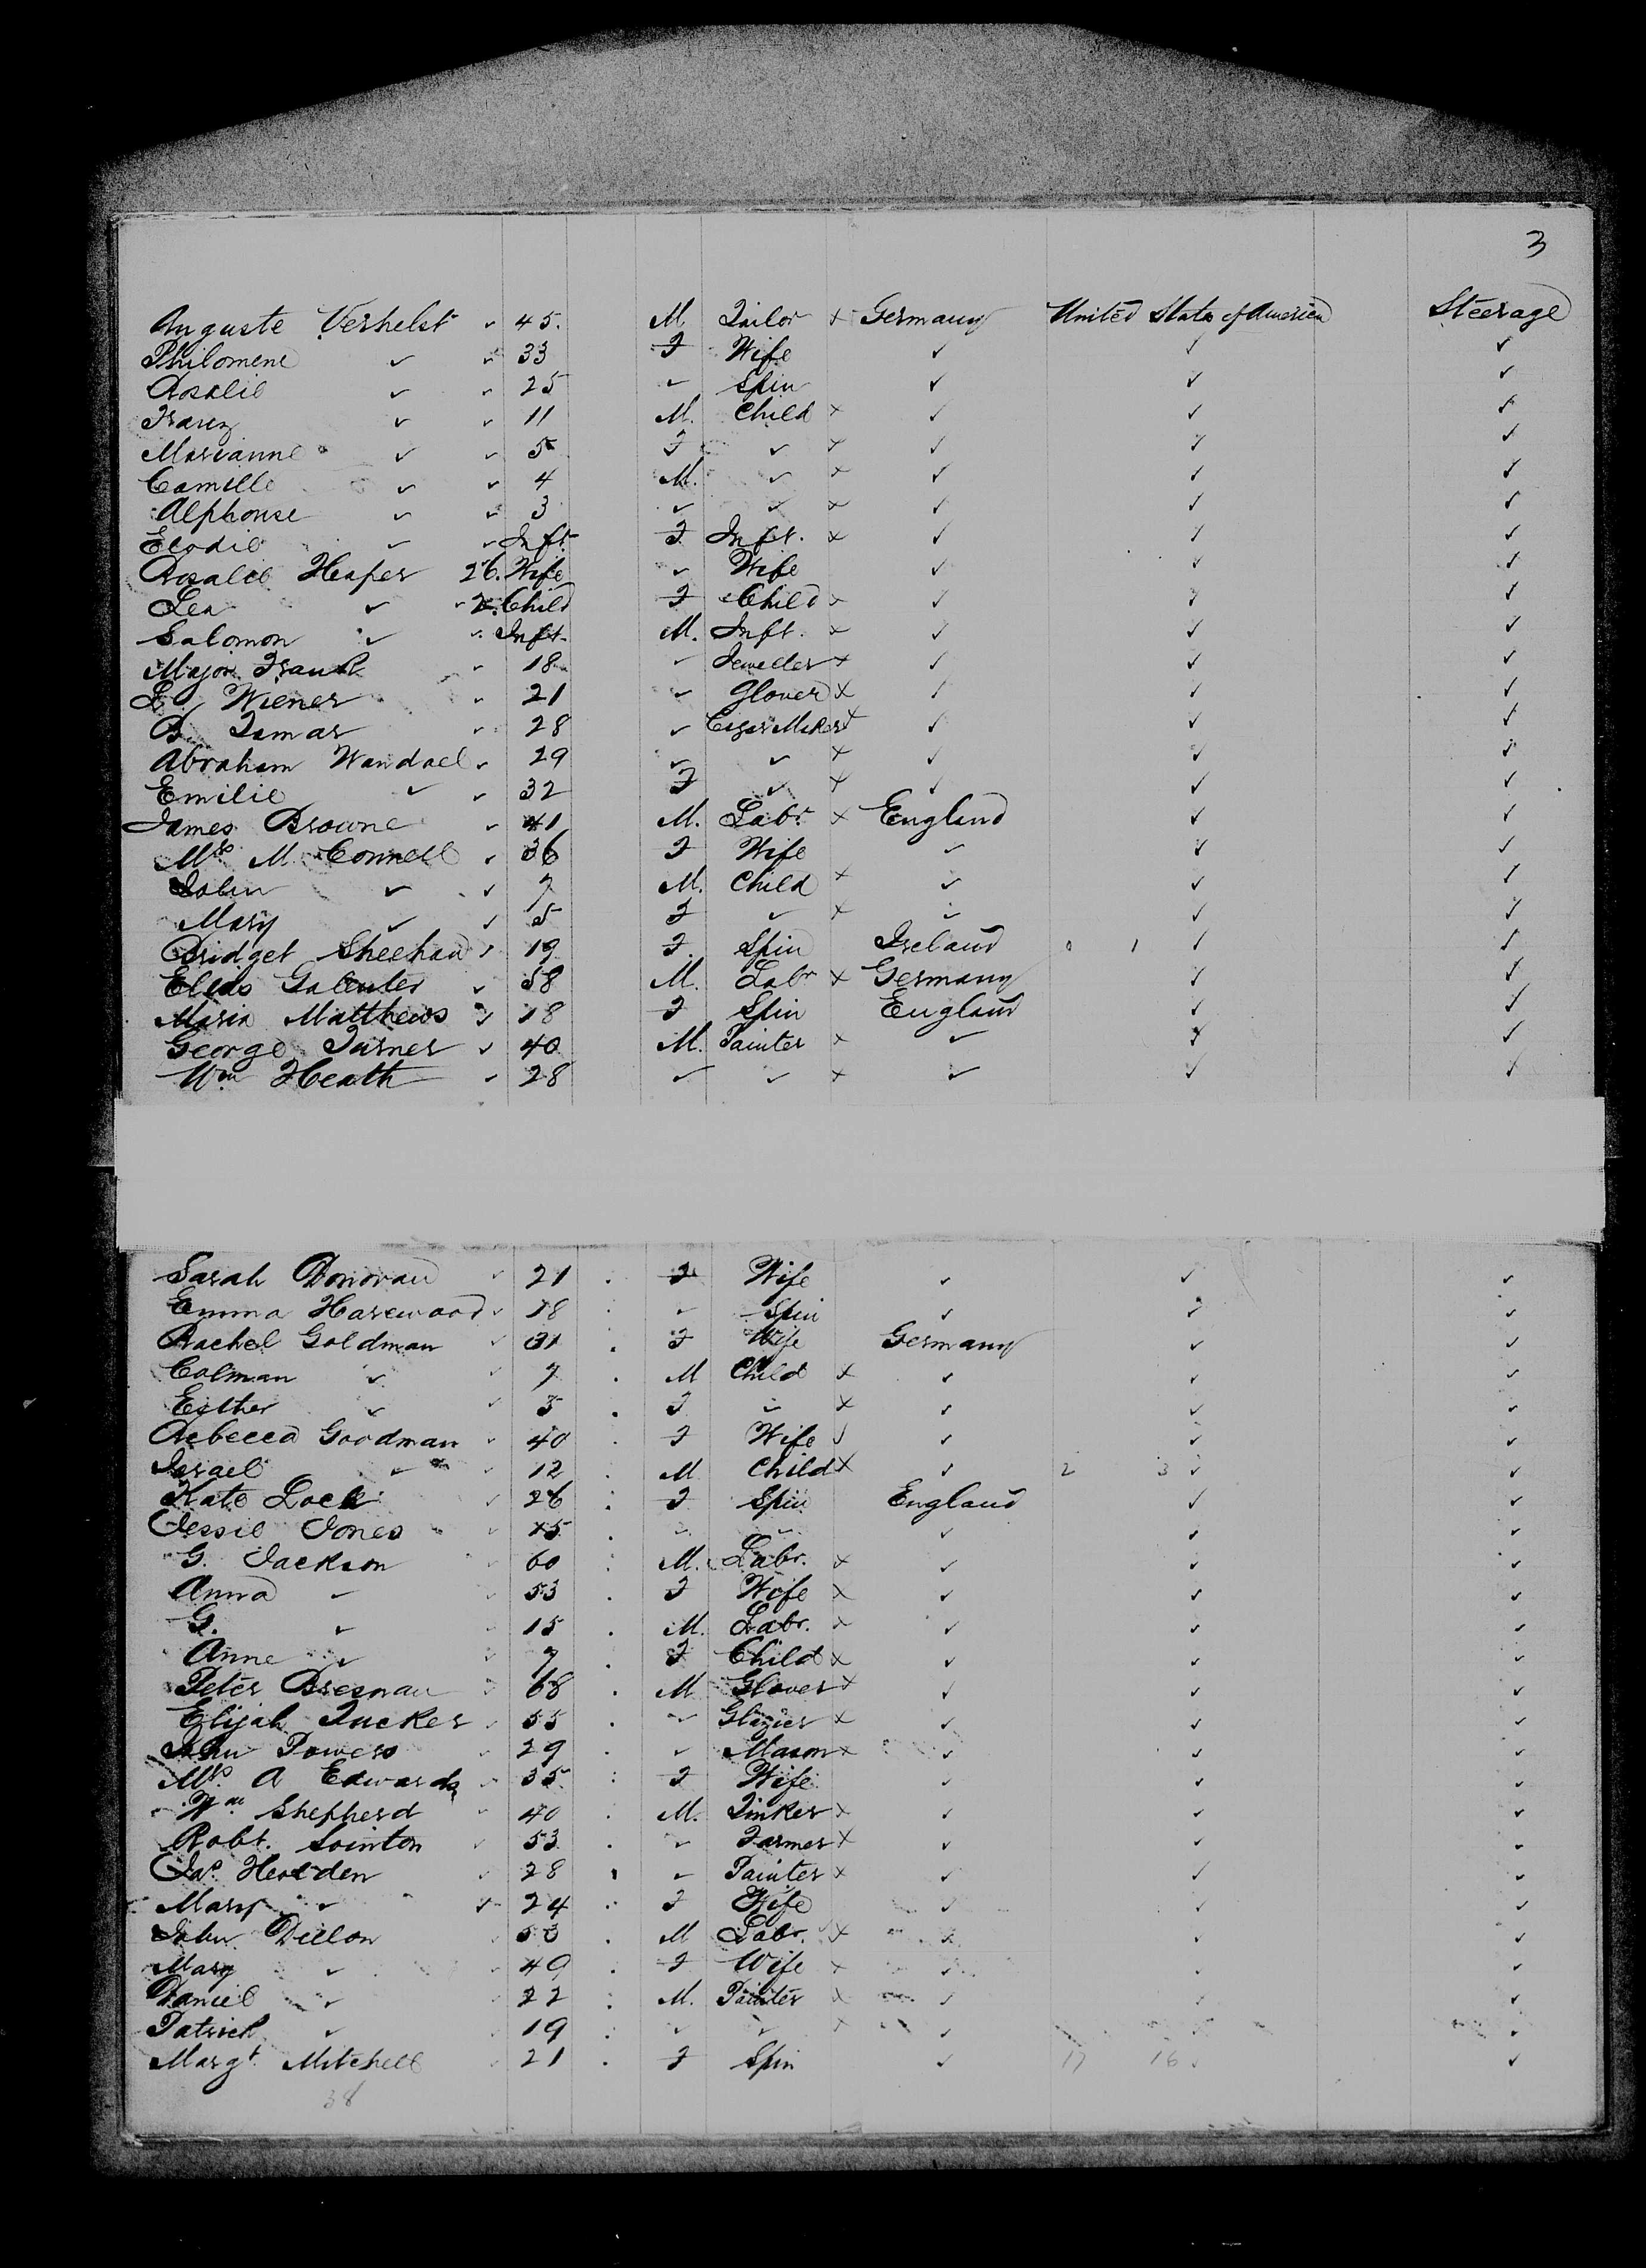 3
Auguste Verhelst ✓ 45. M Tailor × Germany United States of America Steerage
Philomene ✓ ✓ 33 F Wife ✓ ✓ ✓
Rosalie ✓ ✓ 25 ✓ Spin ✓ ✓ ✓
Franz ✓ ✓ 11 M. Child × ✓ ✓ ✓
Marianne ✓ ✓ 5 F ✓ × ✓ ✓ ✓
Camille ✓ ✓ 4 M. ✓ × ✓ ✓ ✓
Alphonse ✓ ✓ 3 ✓ ✓ × ✓ ✓ ✓
Elodie ✓ ✓ Inft F Inft. × ✓ ✓ ✓
Rosalie Hesper 26. Wife ✓ Wife ✓ ✓ ✓
Lea ✓ ✓ 2. Child F Child × ✓ ✓ ✓
Salomon ✓ ✓ Inft. M. Inft. × ✓ ✓ ✓
Major Frank ✓ 18 ✓ Jeweller × ✓ ✓ ✓
L. Wiener ✓ 21 ✓ Glover × ✓ ✓ ✓
B. Tamar ✓ 28 ✓ Cigar Maker × ✓ ✓ ✓
Abraham Wandael ✓ 29 ✓ ✓ × ✓ ✓ ✓
Emilie ✓ ✓ 32 F ✓ × ✓ ✓ ✓
James Browne ✓ 41 M. Labr × England ✓ ✓
Mrs M. Connell ✓ 36 F Wife ✓ ✓ ✓
John ✓ ✓ 7 M. Child × ✓ ✓ ✓
Mary ✓ ✓ 5 F ✓ × ✓ ✓ ✓
Bridget Sheehan ✓ 19 F. Spin Ireland 0 1 ✓ ✓
Elias ✓ 58 M. Labr × Germany ✓ ✓
Maria Matthews ✓ 18 F Spin England ✓ ✓
George Turner ✓ 40 M. Painter × ✓ ✓ ✓
Wm Heath ✓ 28 ✓ ✓ × ✓ ✓ ✓
Sarah Donovan ✓ 21 F Wife ✓ ✓ ✓
Emma Harewood ✓ 18 ✓ Spin ✓ ✓ ✓
Rachel Goldman ✓ 31 F Wife Germany ✓ ✓
Colman ✓ ✓ 7 M Child × ✓ ✓ ✓
Esther ✓ ✓ F ✓ × ✓ ✓ ✓
Rebecca Goodman ✓ 40 F Wife ✓ ✓ ✓ ✓
Israel ✓ ✓ 12 M Child × ✓ 2 3 ✓ ✓
Kate Lock ✓ 26 F Spin England ✓ ✓
Jessie Jones ✓ ✓ ✓ ✓ ✓ ✓
G. Jackson ✓ 60 M. Labr. × ✓ ✓ ✓
Anna ✓ ✓ 53 F Wife × ✓ ✓ ✓
G. ✓ ✓ 15 M. Labr. × ✓ ✓ ✓
Anne ✓ ✓ 7 F Child × ✓ ✓ ✓
Peter Bresnan ✓ 68 M Glover × ✓ ✓ ✓
Elijah Tucker ✓ 55 ✓ Glazier × ✓ ✓ ✓
John Powers ✓ 29 ✓ Mason × ✓ ✓ ✓
Mrs A Edwards ✓ 35 F Wife ✓ ✓ ✓
Wm Shepherd ✓ 40 M. Tinker × ✓ ✓ ✓
Robt. Sointon ✓ 53 ✓ Farmer × ✓ ✓ ✓
Jas. ✓ 28 ✓ Painter × ✓ ✓ ✓
Mary ✓ ✓ 24 F Wife ✓ ✓ ✓
John Dillon ✓ 53 M Labr. × ✓ ✓ ✓
Mary ✓ ✓ 49 F Wife × ✓ ✓ ✓
Daniel ✓ ✓ 22 M. Painter × ✓ ✓ ✓
Patrick ✓ ✓ 19 ✓ ✓ × ✓ ✓ ✓
Margt. Mitchell ✓ 21 F Spin ✓ 17 16 ✓ ✓
38